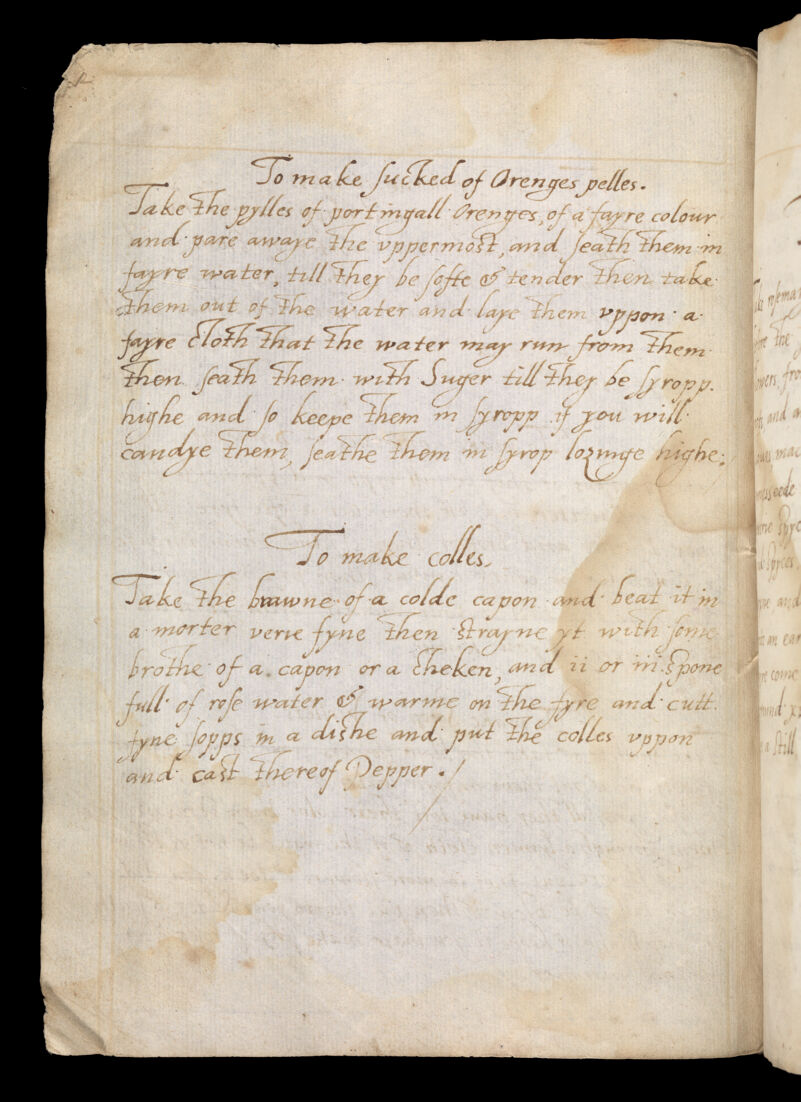 To make sucked of Orenges pelles.
Take the pylles of portingall Orenges, of a fayre colour
and pare awaye the vppermost, and seath them in
fayre water, till they be softe & tender then take
them out of the water and laye them vppon a
fayre cloth that the water may run from them
then seath them with Suger till they be syropp
highe and so keepe them in syropp if you will
candye them, seathe them in syrop lozinge highe.
To make colles
Take the brawne of a colde capon and beat it in
a morter verie fyne then strayne yt with some
brothe of a capon or a cheken, and ii or iii spone
full of rose water & warme on the fyre and cutt
fyne sopps in a dishe and put the colles vppon
and cast thereof Pepper ./